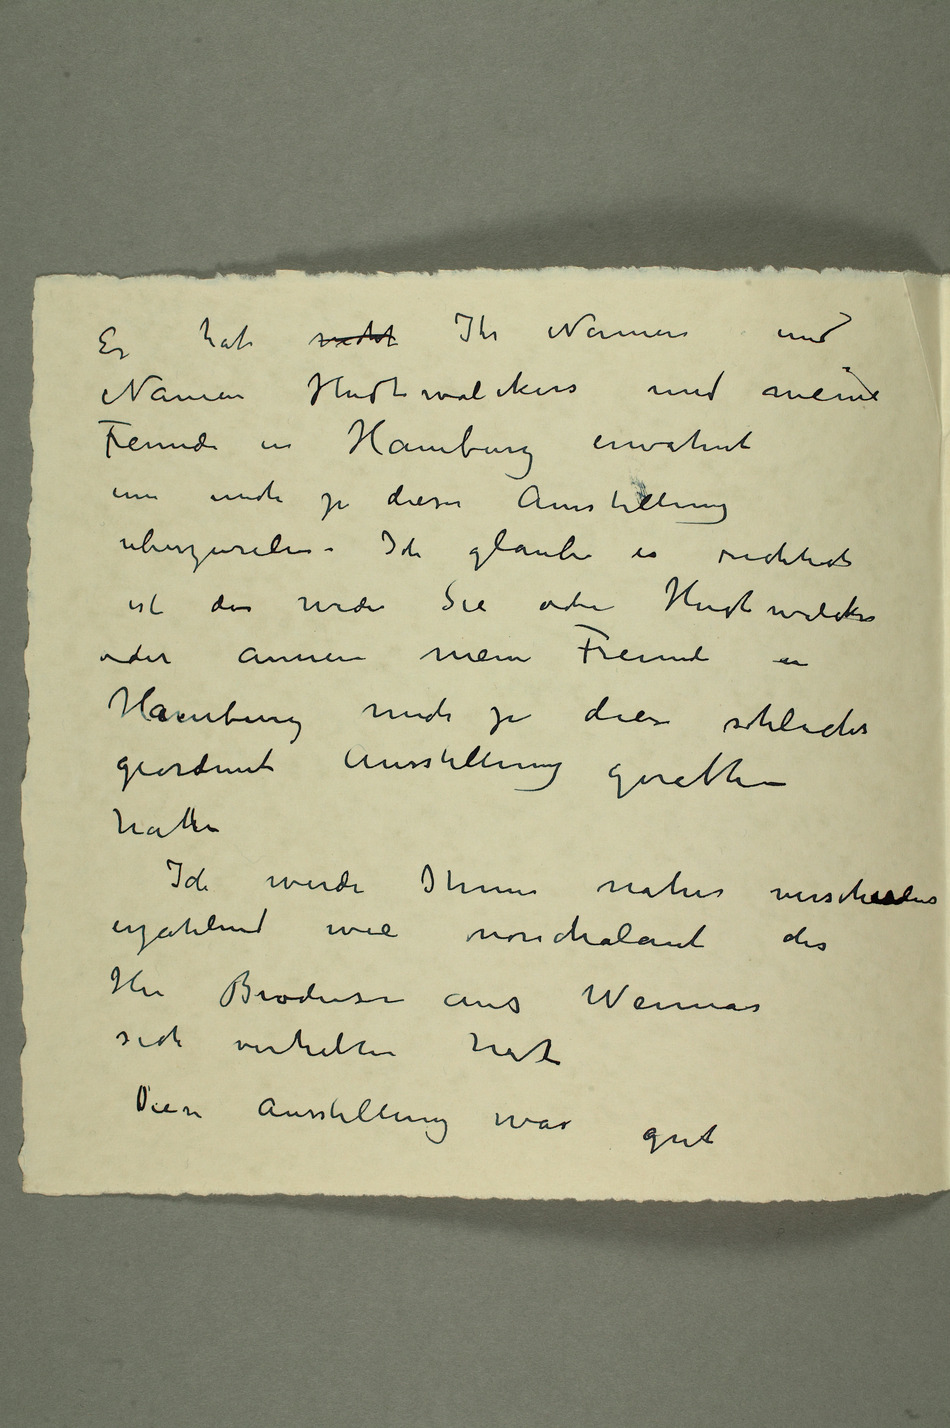 Er hat nicht Ihr Namen und
Namen Hudtwalckers und meine
Freunde in Hamburg erwähnt
um mich zu dieser Ausstellung
überzureden. Ich glaube es richtich
ist das weder Sie oder Hudtwalcker
oder annere mein Freunde in
Hamburg mich zu diese schlecht
geordnent Ausstellung gerathen
hatte
Ich werde Ihnen näher verschiedens
erzählend wie nonchalant des
Her Brodersen aus Weimar
sich verhalten hat
Diese Ausstellung war gut